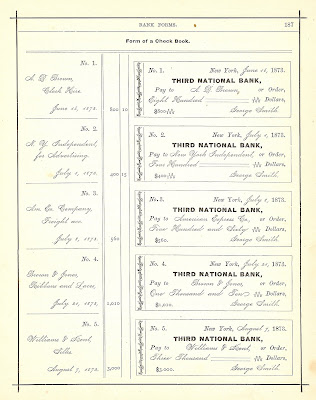 BANK FORMS. 187
Form of a Check Book.
No. 1.
A. D. Brown,
Clerk Hire.
June 15, 1873. 800 10
No. 1. New York, June 15, 1873.
THIRD NATIONAL BANK,
Pay to A. D. Brown, or Order,
Eight Hundred Dollars,
$800 George Smith.
No. 2.
N. Y. Independent,
for Advertising.
July 5, 1873. 400 15
No. 2. New York, July 5, 1873.
THIRD NATIONAL BANK,
Pay to New York Independent, or Order,
Four Hundred Dollars,
$400 George Smith.
No. 3.
Am. Ex. Company,
Freight
July 8, 1873. 560
No. 3. New York, July 8, 1873.
THIRD NATIONAL BANK,
Pay to American Express Co., or Order,
Five Hundred and Sixty Dollars,
$560. George Smith.
No. 4.
Brown & Jones,
Ribbons and Laces,
July 20, 1873. 1,010
No. 4. New York, July 20, 1873.
THIRD NATIONAL BANK,
Pay to Brown & Jones, or Order,
One Thousand and Ten Dollars,
$1,010. George Smith.
No. 5.
Williams &
Silks
August 7, 1873. 3,000
No. 5. New York, August 7, 1873.
THIRD NATIONAL BANK,
Pay to Williams & or Order,
Three Thousand Dollars,
$3,000. George Smith.